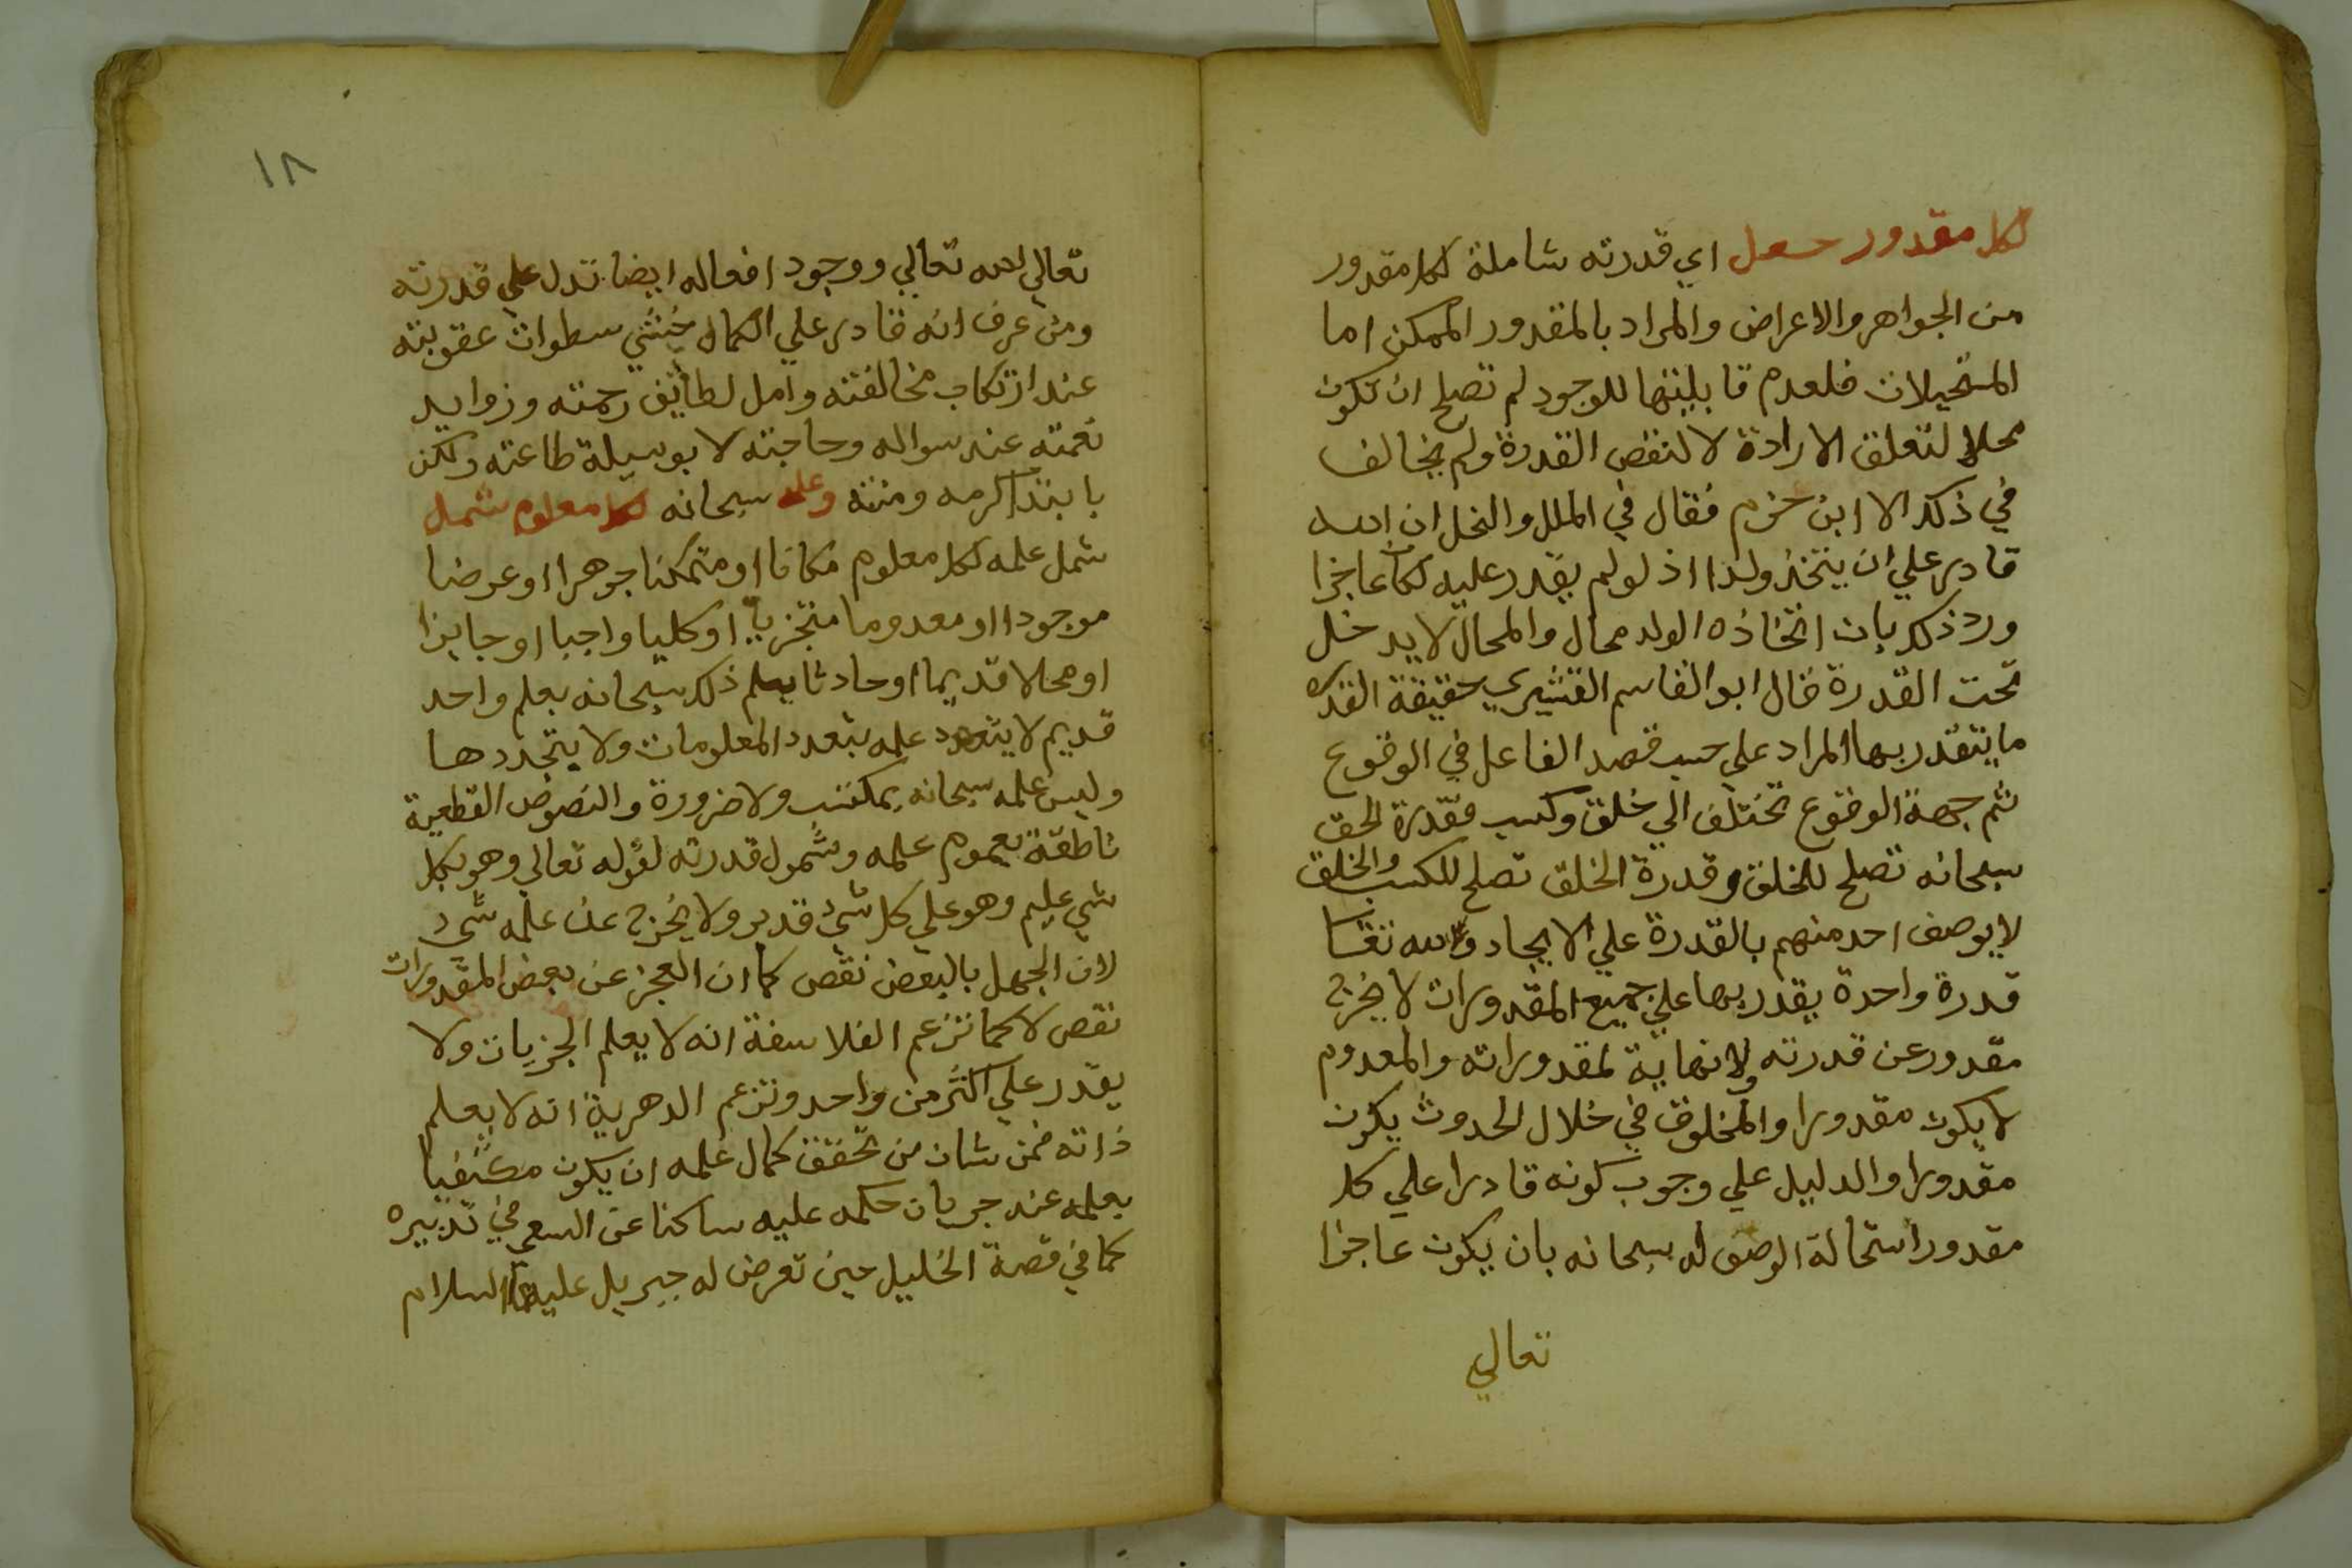 لكل مقدور جعل اي قدرته شاملة لكل مقدور
من الجواهر والاعراض والمراد بالمقدور الممكن اما
المستحيلات فلعدم قابليتها للوجود لم تصلح ان تكون
محلا لتعلق الارادة لا لنقص القدرة ولم يخالف
في ذلك الا ابن حزم فقال في الملل والنحل ان الله
قادر علي ان يتخذ ولدا اذ لو لم يقدر عليه لكان عاجزا
ورد ذلك بان اتخاذه الولد محال والمحال لا يدخل
تحت القدرة قال ابو القاسم القشيري حقيقة القدرة
ما يتقدر بها المراد علي حسب قصد الفاعل في الوقوع
ثم جهة الوقوع تختلف الي خلق وكسب فقدرة الحق
سبحانه تصلح للخلق وقدرة الخلق تصلح للكسب والخلق
لا يوصف احد منهم بالقدرة علي الايجاد ولله تعا
قدرة واحدة يقدر بها علي جميع المقدورات لا يخرج
مقدور عن قدرته ولا نهاية لمقدوراته والمعدوم
لا يكون مقدورا والمخلوق في خلال الحدوث يكون
مقدورا والدليل علي وجوب كونه قادرا علي كل
مقدور استحالة الوصف له سبحانه بان يكون عاجزا
تعالي
١٨
تعالي الله تعالي ووجود افعاله ايضا تدل علي قدرته
ومن عرف انه قادر علي الكمال خشي سطوات عقوبته
عند ارتكاب مخالفته وامل لطايف رحمته وزوايد
نعمته عند سواله وحاجته لا بوسيلة طاعته ولكن
بابتدا كرمه ومنته وعلمه سبحانه لكل معلوم شمل
شمل علمه لكل معلوم مكانا او متمكنا جوهرا او عرضا
موجودا او معدوما متجزيا او كليا واجبا او جايزا
او محالا قديما او حادثا يعلم ذلك سبحانه بعلم واحد
قديم لا يتعدد علمه بتعدد المعلومات ولا يتجددها
وليس علمه سبحانه بمكتسب ولا ضرورة والنصوص القطعية
ناطقة بعموم علمه وشمول قدرته لقوله تعالي وهو بكل
شي عليم وهو علي كل شي قدير ولا يخرج عن علمه شي
لان الجهل بالبعض نقص كما ان العجز عن بعض المقدورات
نقص لا كما تزعم الفلاسفة انه لا يعلم الجزيات ولا
يقدر علي اكثر من واحد وتزعم الدهرية انه لا يعلم
ذاته فمن شان من تحقق كمال علمه ان يكون مكتفيا
بعلمه عند جريان حكمه عليه ساكنا عن السعي في تدبيره
كما في قصة الخليل حين تعرض له جبريل عليهما السلام